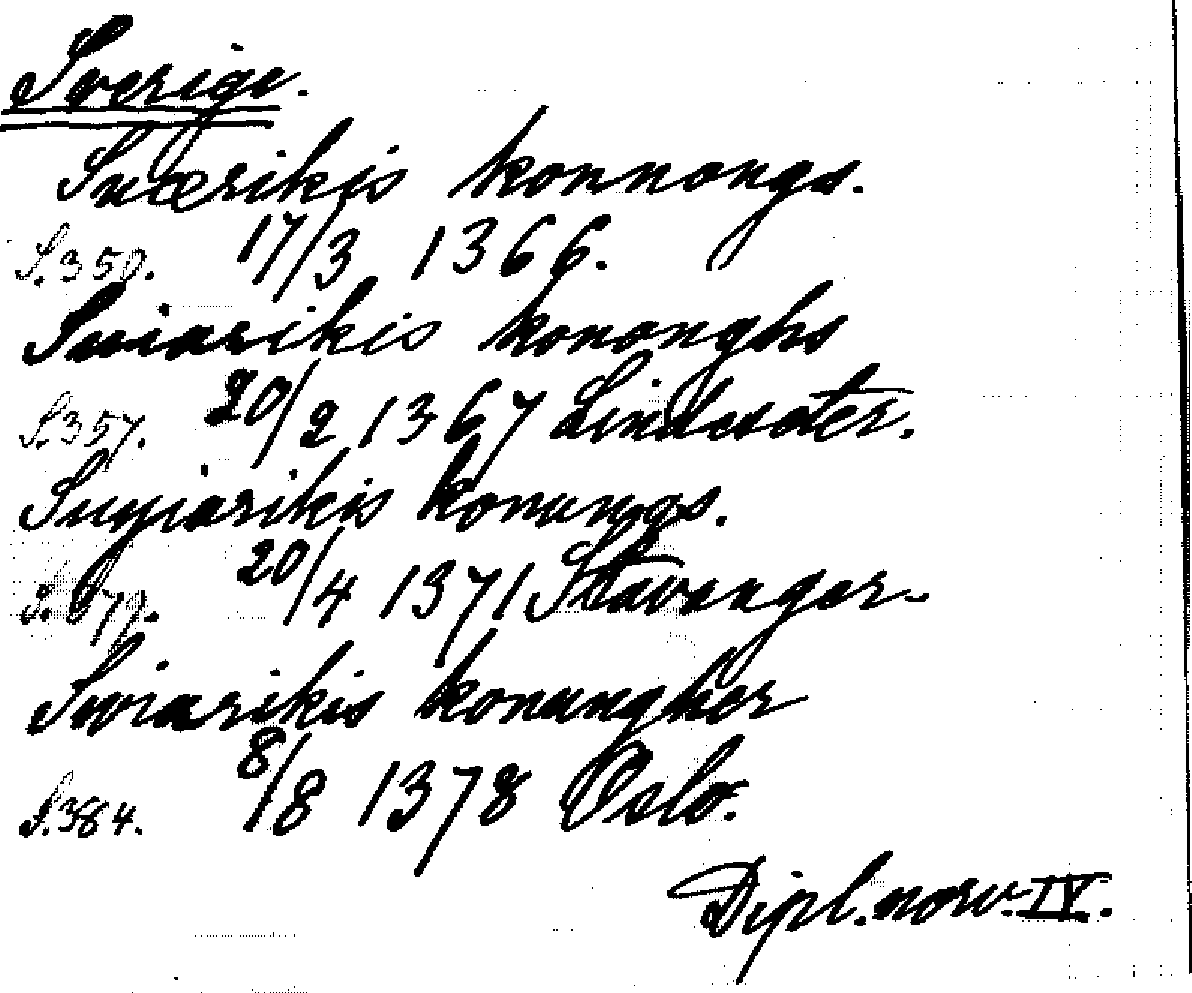 Sverige.
Suærikis konnongs.
S. 350. 17/3 1366.
Suiarikis kononghs
S. 357. 20/2 1367 Lindesæter.
Suyiarikis konungs.
20/4 1371 Stavanger.
Swiarikis konungher
S. 384. 8/8 1378 Oslo.
Dipl. norv. IV.